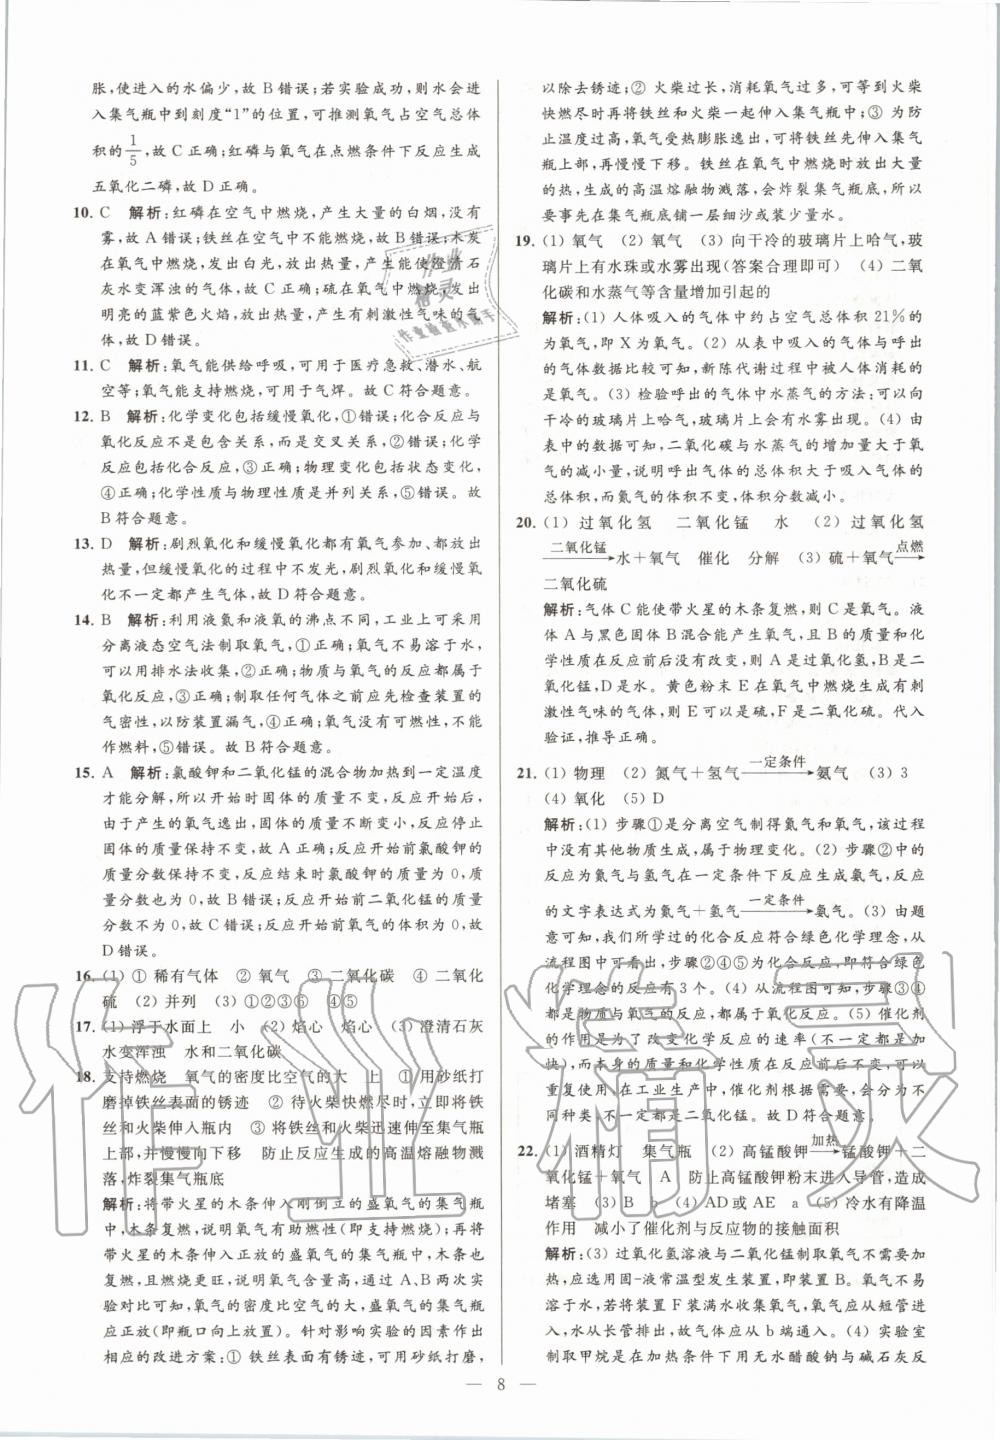 胀,使进入的水偏少,故 B 错误;若实验成功,则水会进
入集气瓶中到刻度“1”的位置,可推测氧气占空气总体
积的1/5,故 C 正确;红磷与氧气在点燃条件下反应生成
五氧化二磷,故 D 正确。
10. C 解析:红磷在空气中燃烧,产生大量的白烟,没有
雾,故 A 错误;铁丝在空气中不能燃烧,故 B 错误;木炭
在氧气中燃烧,发出白光,放出热量,产生能使澄清石
灰水变浑浊的气体,故 C 正确;硫在氧气中燃烧,发出
明亮的蓝紫色火焰,放出热量,产生有刺激性气味的气
体,故 D 错误。
11. C 解析:氧气能供给呼吸,可用于医疗急救、潜水、航
空等;氧气能支持燃烧,可用于气焊。故 C 符合题意。
12. B 解析:化学变化包括缓慢氧化,①错误;化合反应与
氧化反应不是包含关系,而是交叉关系,②错误;化学
反应包括化合反应,③正确;物理变化包括状态变化,
④正确;化学性质与物理性质是并列关系,⑤错误。故
B 符合题意。
13. D 解析:剧烈氧化和缓慢氧化都有氧气参加、都放出
热量,但缓慢氧化的过程中不发光,剧烈氧化和缓慢氧
化不一定都产生气体,故 D 符合题意。
14. B 解析:利用液氮和液氧的沸点不同,工业上可采用
分离液态空气法制取氧气,①正确;氧气不易溶于水,
可以用排水法收集,②正确;物质与氧气的反应都属于
氧化反应,③正确;制取任何气体之前应先检查装置的
气密性,以防装置漏气,④正确;氧气没有可燃性,不能
作燃料,⑤错误。故 B 符合题意。
15. A 解析:氯酸钾和二氧化锰的混合物加热到一定温度
才能分解,所以开始时固体的质量不变,反应开始后,
由于产生的氧气逸出,固体的质量不断变小,反应停止
后固体的质量保持不变,故 A 正确;反应开始前氯酸钾的
质量分数保持不变,反应结束时氯酸钾的质量为 0,质量
分数也为 0,故 B 错误;反应开始前二氧化锰的质量
分数不为 0,故 C 错误;反应开始前氧气的体积为 0,故
D 错误。
16. (1) ① 稀有气体 ② 氧气 ③ 二氧化碳 ④ 二氧化
硫 (2) 并列 (3) ①②③⑥ ④⑤
17. (1) 浮于水面上 小 (2) 焰心 焰心 (3) 澄清石灰
水变浑浊 水和二氧化碳
18. 支持燃烧 氧气的密度比空气的大 上 ① 用砂纸打
磨掉铁丝表面的锈迹 ② 待火柴快燃尽时,立即将铁
丝和火柴伸入瓶内 ③ 将铁丝和火柴迅速伸至集气瓶
上部,并慢慢向下移 防止反应生成的高温熔融物溅
落,炸裂集气瓶底
解析:将带火星的木条伸入刚倒立的盛氧气的集气瓶
中,木条复燃,说明氧气有助燃性(即支持燃烧);再将
带火星的木条伸入正放的盛氧气的集气瓶中,木条也
复燃,且燃烧更旺,说明氧气含量高,通过 A、B 两次实
验对比可知,氧气的密度比空气的大,盛氧气的集气瓶
应正放(即瓶口向上放置)。针对影响实验的因素作出
相应的改进方案:① 铁丝表面有锈迹,可用砂纸打磨,
以除去锈迹;② 火柴过长,消耗氧气过多,可等到火柴
快燃尽时再将铁丝和火柴一起伸入集气瓶中;③ 为防
止温度过高,氧气受热膨胀逸出,可将铁丝先伸入集气
瓶上部,再慢慢下移。铁丝在氧气中燃烧时放出大量
的热,生成的高温熔融物溅落,会炸裂集气瓶底,所以
要事先在集气瓶底铺一层细沙或装少量水。
19. (1) 氧气 (2) 氧气 (3) 向干冷的玻璃片上哈气,玻
璃片上有水珠或水雾出现(答案合理即可) (4) 二氧
化碳和水蒸气等含量增加引起的
解析:(1) 人体吸入的气体中约占空气总体积 21%的
为氧气,即 X 为氧气。(2) 从表中吸入的气体与呼出
的气体数据比较可知,新陈代谢过程中被人体消耗的
是氧气。(3) 检验呼出的气体中水蒸气的方法:可以向
干冷的玻璃片上哈气,玻璃片上会有水雾出现。(4) 由
表中的数据可知,二氧化碳与水蒸气的增加量大于氧
气的减小量,说明呼出气体的总体积大于吸入气体的
总体积,而氮气的体积不变,体积分数减小。
20. (1) 过氧化氢 二氧化锰 水 (2) 过氧化氢
二氧化锰→水+氧气 催化 分解 (3) 硫+氧气点燃→
二氧化硫
解析:气体 C 能使带火星的木条复燃,则 C 是氧气。液
体 A 与黑色固体 B 混合能产生氧气,且 B 的质量和化
学性质在反应前后没有改变,则 A 是过氧化氢,B 是二
氧化锰,D 是水。黄色粉末 E 在氧气中燃烧生成有刺
激性气味的气体,则 E 可以是硫,F 是二氧化硫。代入
验证,推导正确。
21. (1) 物理 (2) 氮气+氢气一定条件→氨气 (3) 3
(4) 氧化 (5) D
解析:(1) 步骤①是分离空气制得氮气和氧气,该过程
中没有其他物质生成,属于物理变化。(2) 步骤②中的
反应为氮气与氢气在一定条件下反应生成氨气,反应
的文字表达式为氮气+氢气一定条件→氨气。(3) 由题
意可知,我们所学过的化合反应符合绿色化学理念,从
流程图中可看出,步骤②④⑤为化合反应,即符合绿色
化学理念的反应有 3 个。(4) 从流程图可知,步骤③④
都是物质与氧气的反应,都属于氧化反应。(5) 催化剂
的作用是为了改变化学反应的速率(不一定都是加
快),而本身的质量和化学性质在反应前后不变,可以
重复使用,在工业生产中,催化剂根据需要,会分为不
同种类,不一定是二氧化锰。故 D 符合题意。
22. (1) 酒精灯 集气瓶 (2) 高锰酸钾加热→锰酸钾+二
氧化锰+氧气 A 防止高锰酸钾粉末进入导管,造成
堵塞 (3) B b (4) AD 或 AE a (5) 冷水有降温
作用 减小了催化剂与反应物的接触面积
解析:(3) 过氧化氢溶液与二氧化锰制取氧气不需要加
热,应选用固-液常温型发生装置,即装置 B。氧气不易
溶于水,若将装置 F 装满水收集氧气,氧气应从短管进
入,水从长管排出,故气体应从 b 端通入。(4) 实验室
制取甲烷是在加热条件下用无水醋酸钠与碱石灰反
— 8 —